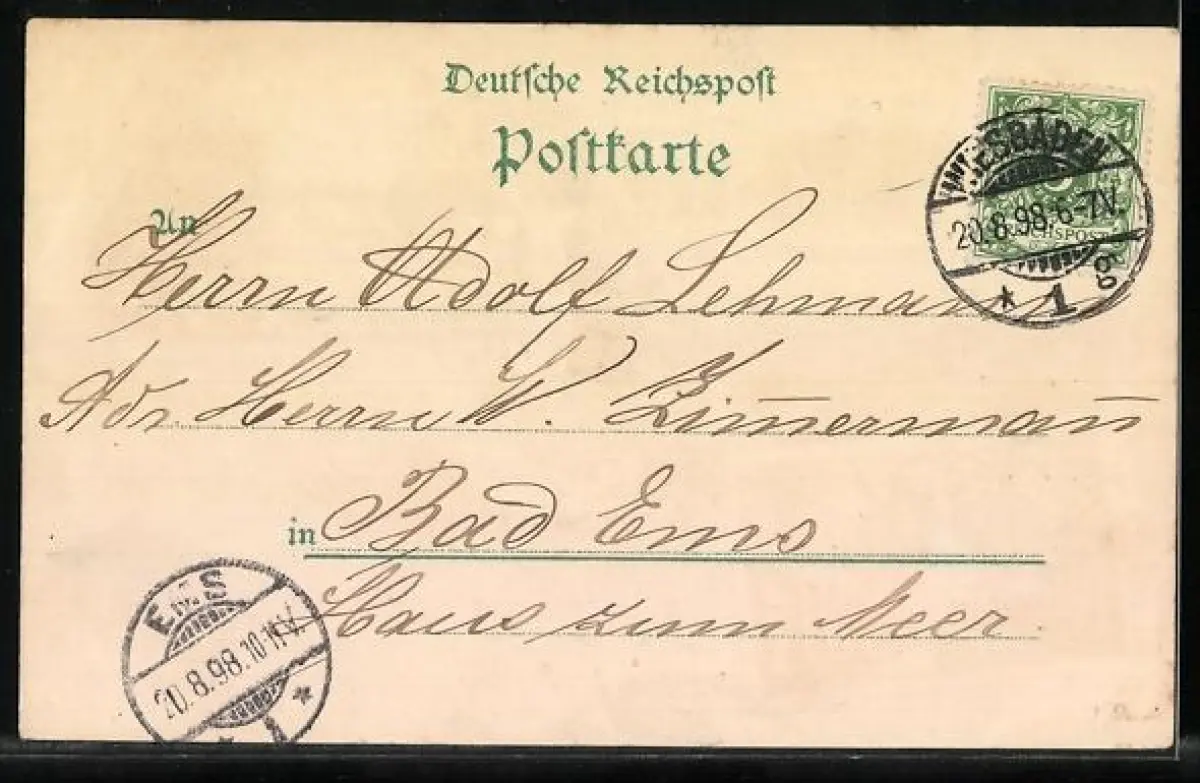 Deutsche Reichspost
Postkarte
WIESBADEN
20.8.98.6-7V.
REICHSPOST
* 1
An
Herrn Adolf Lehmann
Adr. Herrn W. Zim̅erman̅
in Bad Ems
Haus zum Meer.
EMS
20.8.98.10-11V.
* 1 *